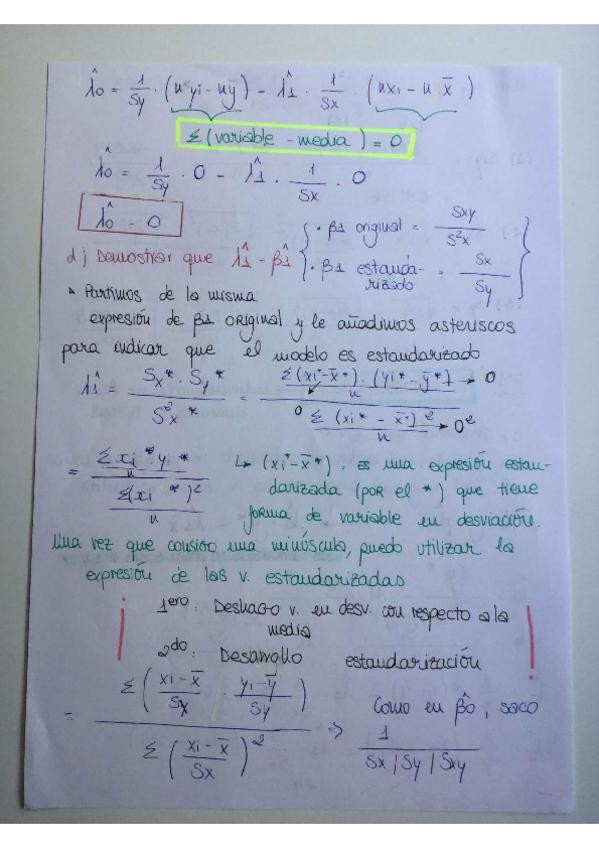 λ̂0 = 1/Sy · (n ȳi - nȳ) - λ̂1 · 1/Sx · (nxi - n x̄)
Σ(variable - media) = 0
λ̂0 = 1/Sy · 0 - λ̂1 · 1/Sx · 0
λ̂0 - 0
d) Demostrar que λ̂1 - β̂1 { · β1 original = Sxy / S²x
· β1 estandarizado = Sx / Sy }
Partimos de la misma
expresión de β1 original y le añadimos asteriscos
para indicar que el modelo es estandarizado
λ̂1 = Sx* · Sy* / S²x* = (Σ(xi*-x̄*) · (yi* - ȳ*) / n) / (Σ(xi* - x̄*)² / n) → 0
0 → 0²
= (Σxi* · yi* / n) / (Σ(xi*)² / n) ↳ (xi*-x̄*), es una expresión estan-
darizada (por el *) que tiene
forma de variable en desviación.
Una vez que consigo una minúscula, puedo utilizar la
expresión de las v. estandarizadas
1ero: Deshago v. en desv. con respecto a la
media
2do: Desarrollo estandarización
= Σ((xi-x̄)/Sx · (yi-ȳ)/Sy) / Σ((xi-x̄)/Sx)² => Como en β̂0, saco
1 / Sx | Sy | Sxy